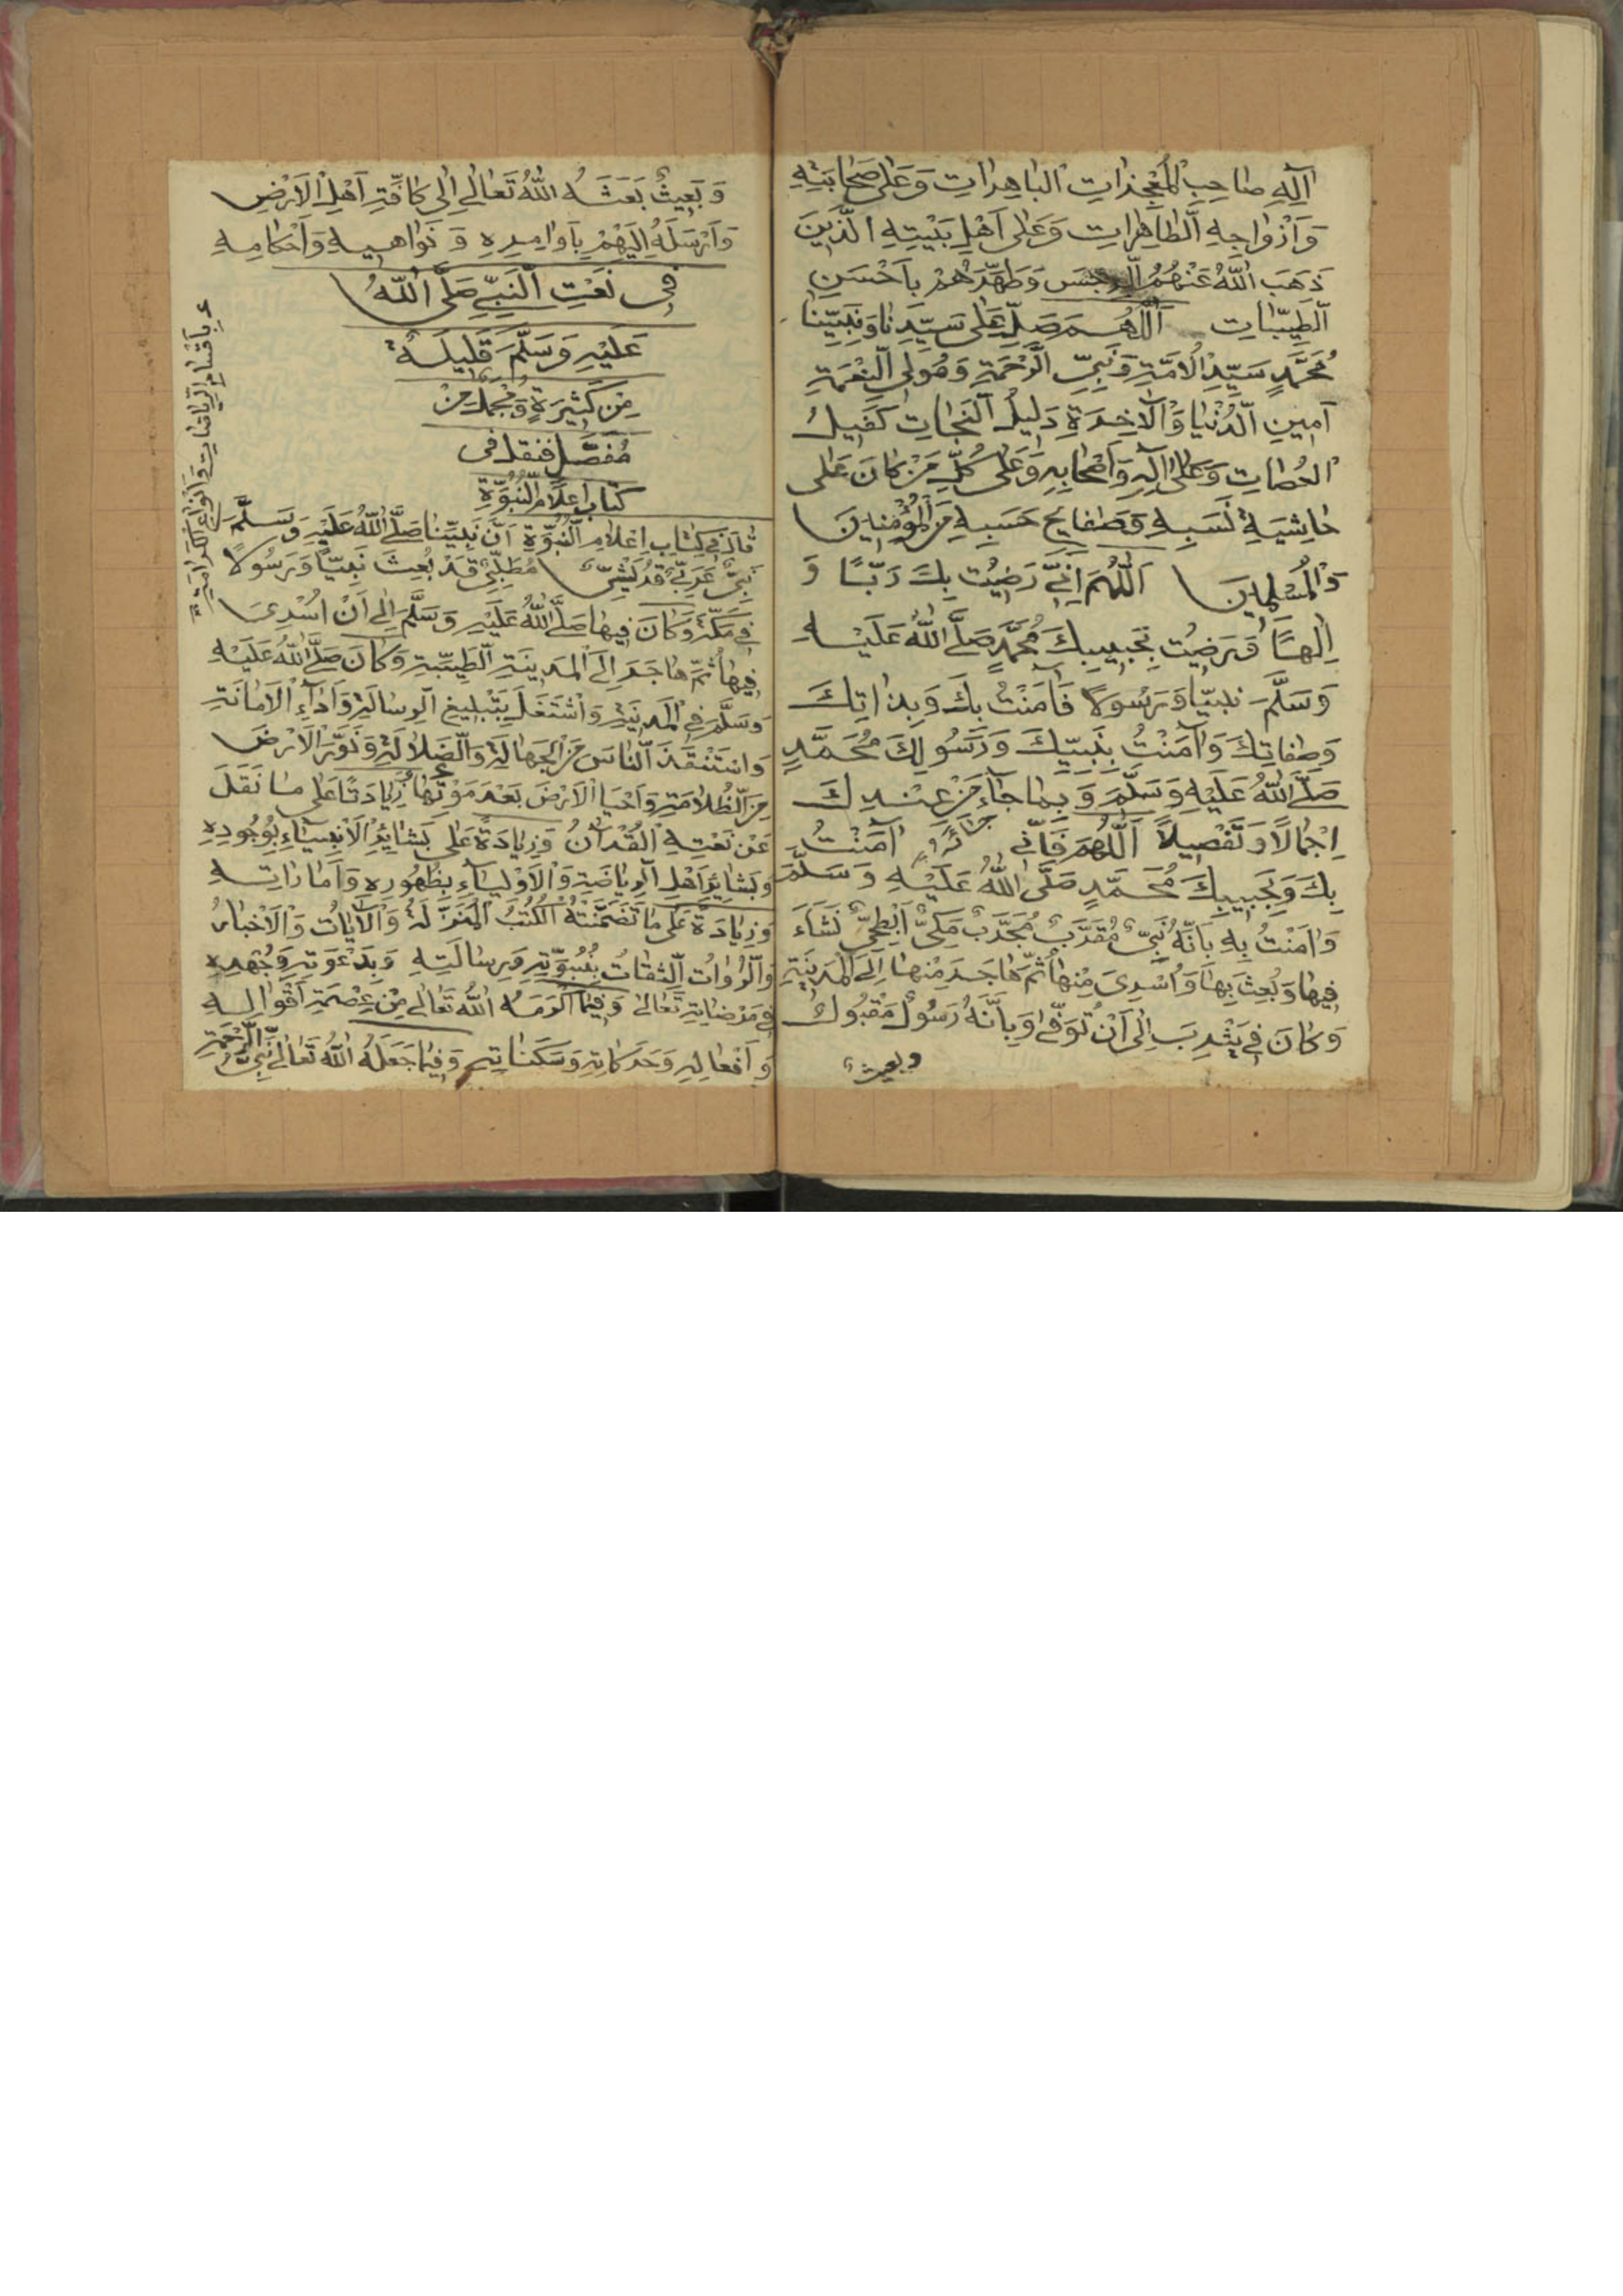 اٰلِهِ صٰاحِبِ الْمُعْجِزٰاتِ الْبٰاهِرٰاتِ وَعَلٰى صَحٰابَتِهِ
وَاَزْوٰاجِهِ الطّٰاهِرٰاتِ وَعَلٰى اَهْلِ بَيْتِهِ الَّذِينَ
ذَهَبَ اللّٰهُ عَنْهُمُ الرِّجْسَ وَطَهَّرَهُمْ بِاَحْسَنِ
الطَّيِّبٰاتِ اَللّٰهُمَّ صَلِّ عَلٰى سَيِّدِنٰا وَنَبِيِّنٰا
مُحَمَّدٍ سَيِّدِ الْاُمَّةِ وَنَبِيِّ الرَّحْمَةِ وَمُولِى النِّعْمَةِ
اَمِينِ الدُّنْيٰا وَالْاٰخِرَةِ دَلِيلُ النَّجٰاتِ كَفِيلُ
وَعَلٰى اٰلِهِ وَاَصْحٰابِهِ وَعَلٰى كُلِّ مَنْ كٰانَ عَلٰى
حٰاشِيَةِ نَسَبِهِ وَصَفٰايِحِ حَسَبِهِ مِنَ الْمُؤْمِنِينَ
وَالْمُسْلِمِينَ اَللّٰهُمَّ اِنِّي رَضِيْتُ بِكَ رَبًّا وَ
اِلٰهًا وَرَضِيْتُ بِحَبِيبِكَ مُحَمَّدٍ صَلَّى اللّٰهُ عَلَيْهِ
وَسَلَّمَ نَبِيًّا وَرَسُولًا فَاٰمَنْتُ بِكَ وَبِذٰاتِكَ
وَصِفٰاتِكَ وَاٰمَنْتُ بِنَبِيِّكَ وَرَسُولِكَ مُحَمَّدٍ
صَلَّى اللّٰهُ عَلَيْهِ وَسَلَّمَ وَبِمٰا جٰاءَ مِنْ عِنْدِكَ
اِجْمٰالًا وَتَفْصِيلًا اَللّٰهُمَّ فَاِنِّي اٰمَنْتُ
بِكَ وَبِحَبِيبِكَ مُحَمَّدٍ صَلَّى اللّٰهُ عَلَيْهِ وَسَلَّمَ
وَاٰمَنْتُ بِهِ بِاَنَّهُ نَبِيٌّ مُقَرَّبٌ مُجَرَّبٌ مَكِّيٌّ اَبْطَحِيٌّ نَشَاَءَ
فِيهٰا وَبُعِثَ بِهٰا وَاُسْرِىَ مِنْهٰا ثُمَّ هٰاجَرَ مِنْهٰا اِلَى الْمَدِينَةِ
وَكٰانَ فِي يَثْرِبَ اِلٰى اَنْ تُوَفّٰى وَبِاَنَّهُ رَسُولٌ مَقْبُولٌ
وبعيث
وَبَعِيثٌ بَعَثَهُ اللّٰهُ تَعٰالٰى اِلٰى كٰافَّةِ اَهْلِ الْاَرْضِ
وَاَرْسَلَهُ اِلَيْهِمْ بِاَوٰامِرِهِ وَنَوٰاهِيهِ وَاَحْكٰامِهِ
فِى نَعْتِ النَّبِيِّ صَلَّى اللّٰهُ
عَلَيْهِ وَسَلَّمَ قَلِيلَةٌ
مِنْ كَثِيرَةٍ وَمُجْمَلٌ مِنْ
مُفَصَّلٍ فنقل فى
كتاب اعلام النُّبُوَّةِ
قٰالَ فِي كِتٰابِ اِعْلٰامِ النُّبُوَّةِ اَنَّ نَبِيَّنٰا صَلَّى اللّٰهُ عَلَيْهِ وَسَلَّمَ
نَبِيٌّ عَرَبِيٌّ قُرَيْشِيٌّ مُطَّلِبِيٌّ قَدْ بُعِثَ نَبِيًّا وَرَسُولًا
فِي مَكَّةَ وَكٰانَ فِيهٰا صَلَّى اللّٰهُ عَلَيْهِ وَسَلَّمَ اِلٰى اَنْ اُسْرِىَ
فِيهٰا ثُمَّ هٰاجَرَ اِلَى الْمَدِينَةِ الطَّيِّبَةِ وَكٰانَ صَلَّى اللّٰهُ عَلَيْهِ
وَسَلَّمَ فِي الْمَدِينَةِ وَاشْتَغَلَ بِتَبْلِيغِ الرِّسٰالَةِ وَاَدٰاءِ الْاَمٰانَةِ
وَاسْتَنْقَذَ النّٰاسَ مِنَ الْجَهٰالَةِ وَالضَّلٰالَةِ وَنَوَّرَ الْاَرْضَ
مِنَ الظُّلٰامَةِ وَاَحْيَا الْاَرْضَ بَعْدَ مَوْتِهٰا زِيٰادَتًا عَلٰى مٰا نَقَلَ
عَنْ نَعْتِهِ الْقُرْاٰنُ وَزِيٰادَةً عَلٰى بَشٰائِرِ الْاَنْبِيٰاءِ بِوُجُودِهِ
وَبَشٰائِرِ اَهْلِ الرِّيٰاضَةِ وَالْاَوْلِيٰاءِ بِظُهُورِهِ وَاَمٰارٰاتِهِ
وَزِيٰادَةً عَلٰى مٰا تَضَمَّنَتْهُ الْكُتُبُ الْمُنَزَّلَةُ وَالْاٰيٰاتُ وَالْاَخْبٰارُ
وَالرُّوٰاتُ الثِّقٰاتُ بِنُبُوَّتِهِ وَرِسٰالَتِهِ وَبِدَعْوَتِهِ وَجُهْدِهِ
فِي مَرْضٰاتِهِ تَعٰالٰى وَفِيمٰا اَكْرَمَهُ اللّٰهُ تَعٰالٰى مِنْ عِصْمَةِ اَقْوٰالِهِ
وَاَفْعٰالِهِ وَحَرَكٰاتِهِ وَسَكَنٰاتِهِ وَفِيمٰا جَعَلَهُ اللّٰهُ تَعٰالٰى نَبِيَّ الرَّحْمَةِ
بِاَقْسٰامِ الرِّيٰاضٰاتِ وَاَنْوٰاعِ الْكَرٰامَةِ